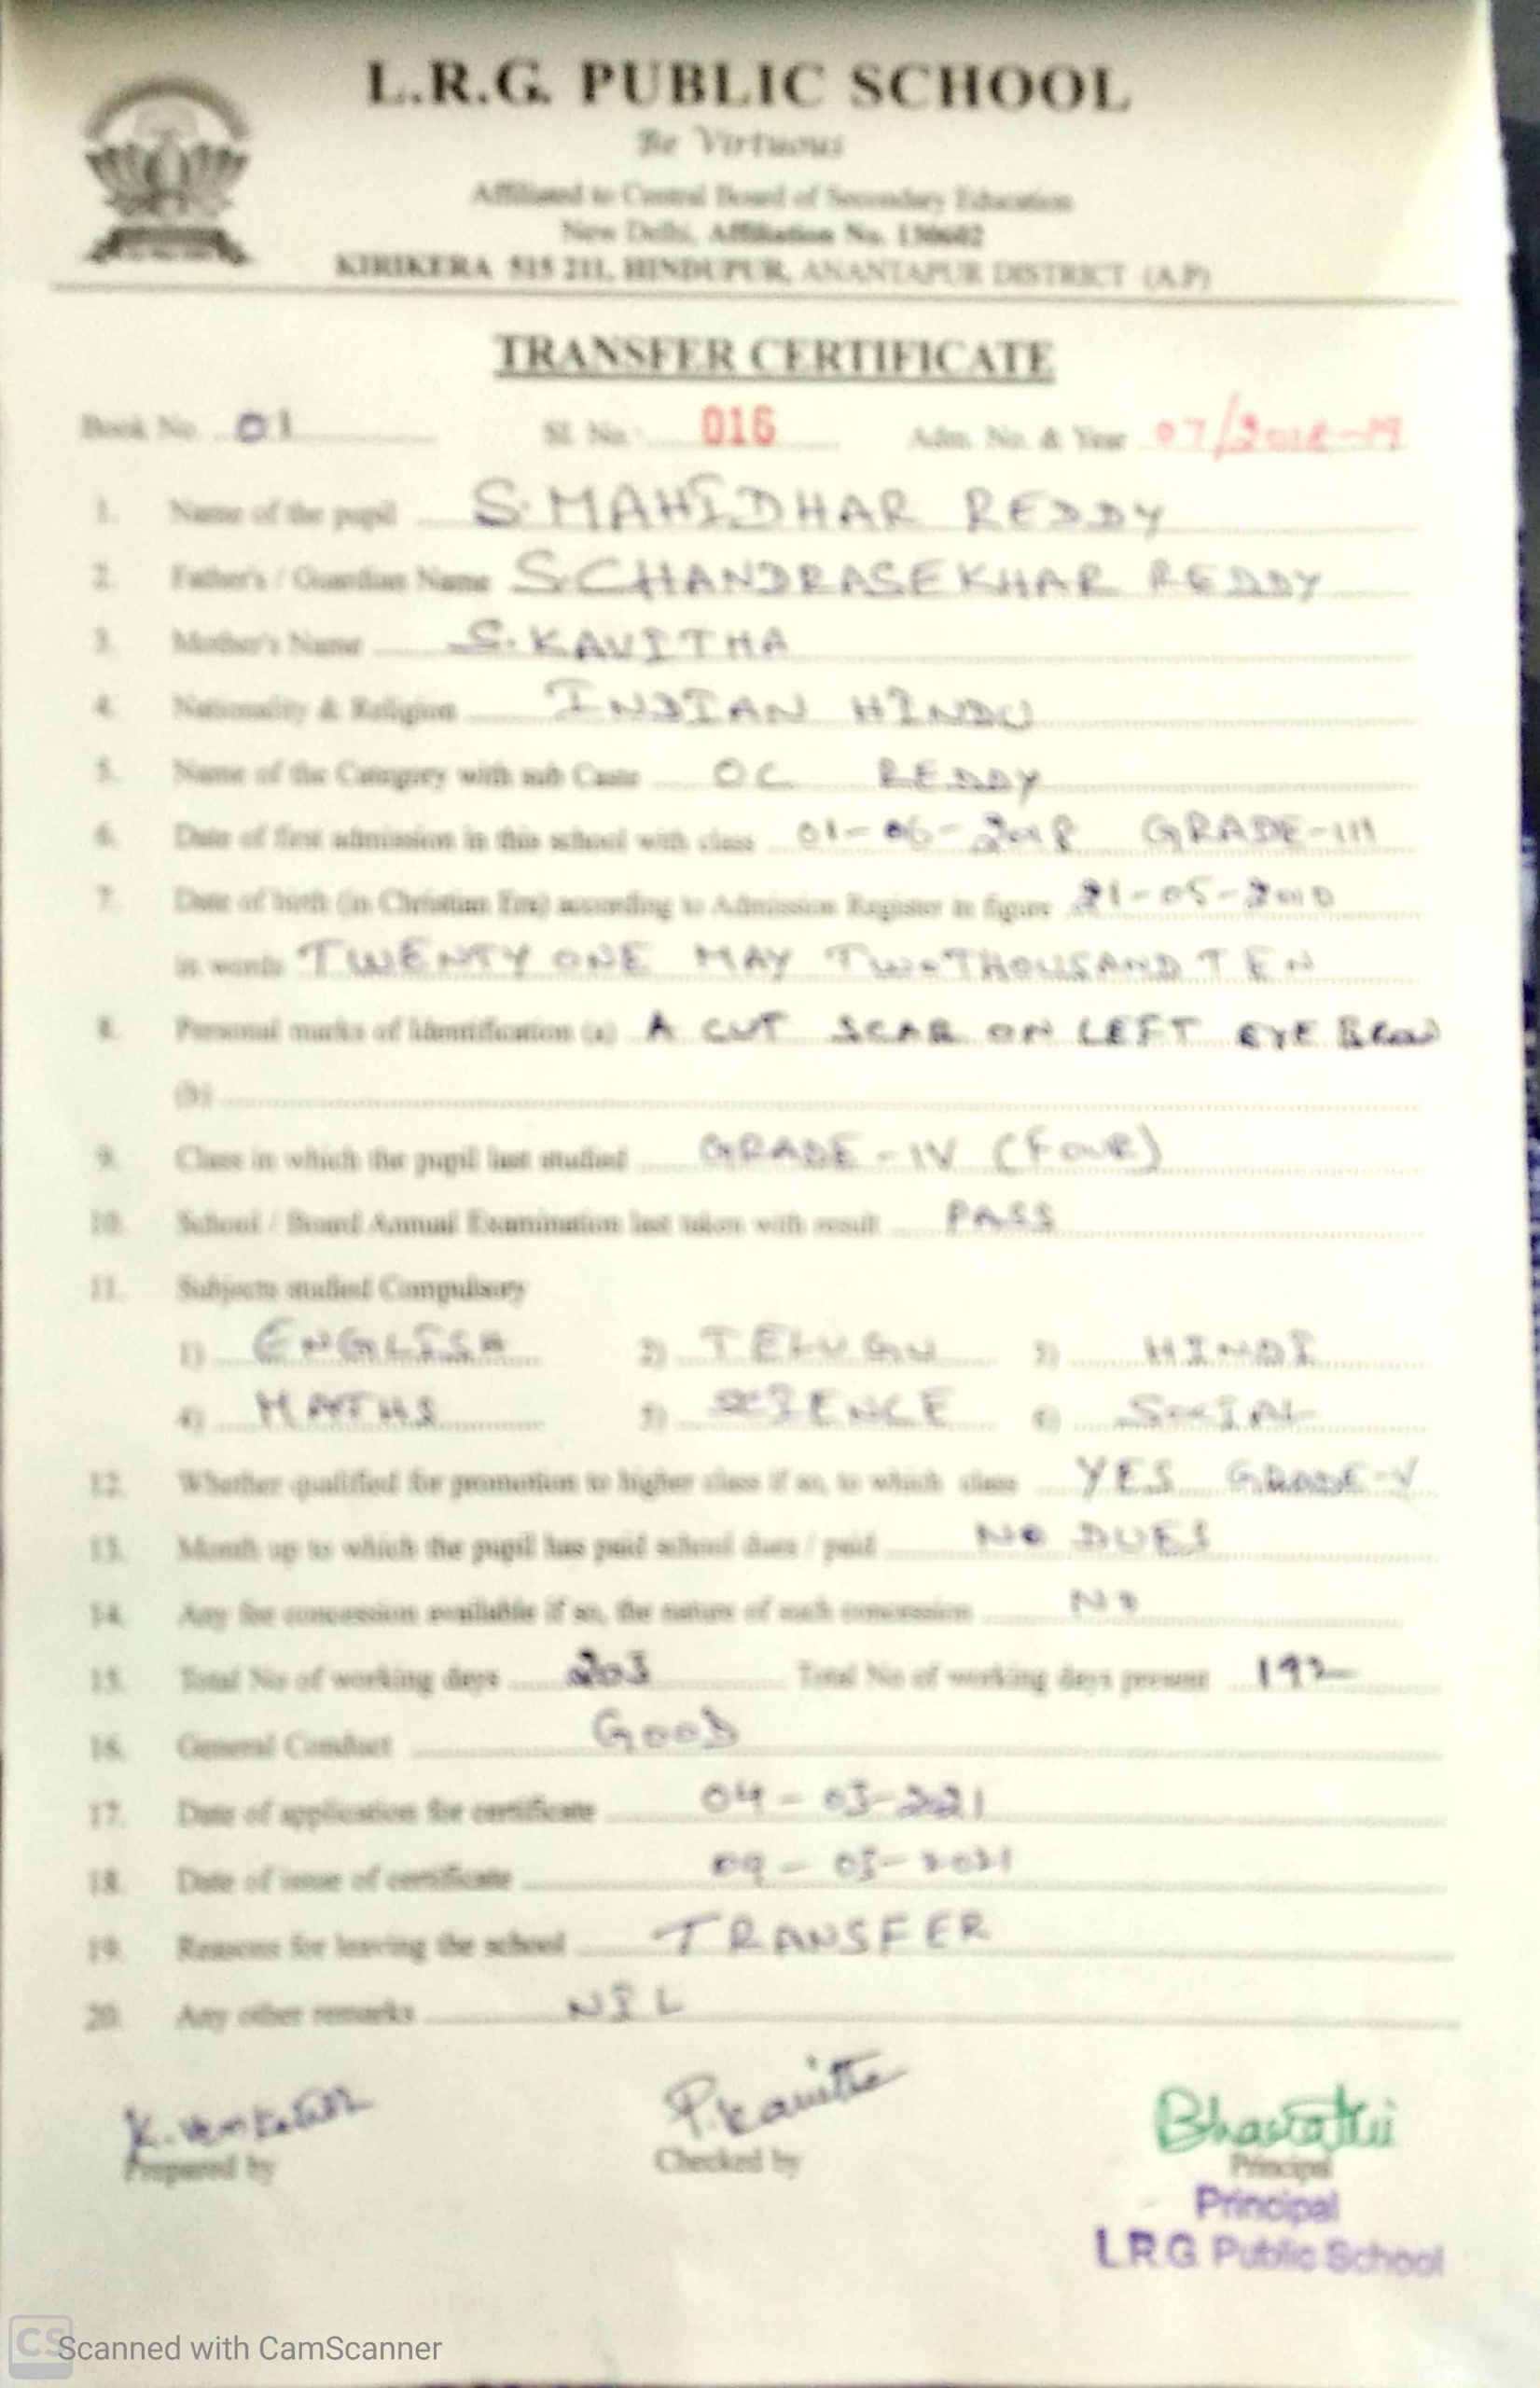 L.R.G. PUBLIC SCHOOL
Be Virtuous
Affiliated to Central Board of Secondary Education
New Delhi, Affiliation No. 130602
KIRIKERA 515 211, HINDUPUR, ANANTAPUR DISTRICT (A.P)
TRANSFER CERTIFICATE
Book No. 01 Sl. No. 016 Adm. No. & Year 07/2018-19
1. Name of the pupil S. MAHIDHAR REDDY
2. Father's / Guardian Name S.CHANDRASEKHAR REDDY
3. Mother's Name S. KAVITHA
4. Nationality & Religion INDIAN HINDU
5. Name of the Category with sub Caste OC REDDY
6. Date of first admission in this school with class 01-06-2018 GRADE-III
7. Date of birth (in Christian Era) according to Admission Register in figure 21-05-2010
in words TWENTY ONE MAY TWO THOUSAND TEN
8. Personal marks of identification (a) A CUT SCAR ON LEFT EYE BROW
(b)
9. Class in which the pupil last studied GRADE-IV (FOUR)
10. School / Board Annual Examination last taken with result PASS
11. Subjects studied Compulsory
1) ENGLISH 2) TELUGU 3) HINDI
4) MATHS 5) SCIENCE 6) SOCIAL
12. Whether qualified for promotion to higher class if so, to which class YES GRADE-V
13. Month up to which the pupil has paid school dues / paid NO DUES
14. Any fee concession available if so, the nature of such concession NO
15. Total No of working days 203 Total No of working days present 192
16. General Conduct GOOD
17. Date of application for certificate 04-03-2021
18. Date of issue of certificate 09-03-2021
19. Reasons for leaving the school TRANSFER
20. Any other remarks NIL
P.kavitha Bharathi
Prepared by Checked by Principal
Principal
L.R.G Public School
CS Scanned with CamScanner